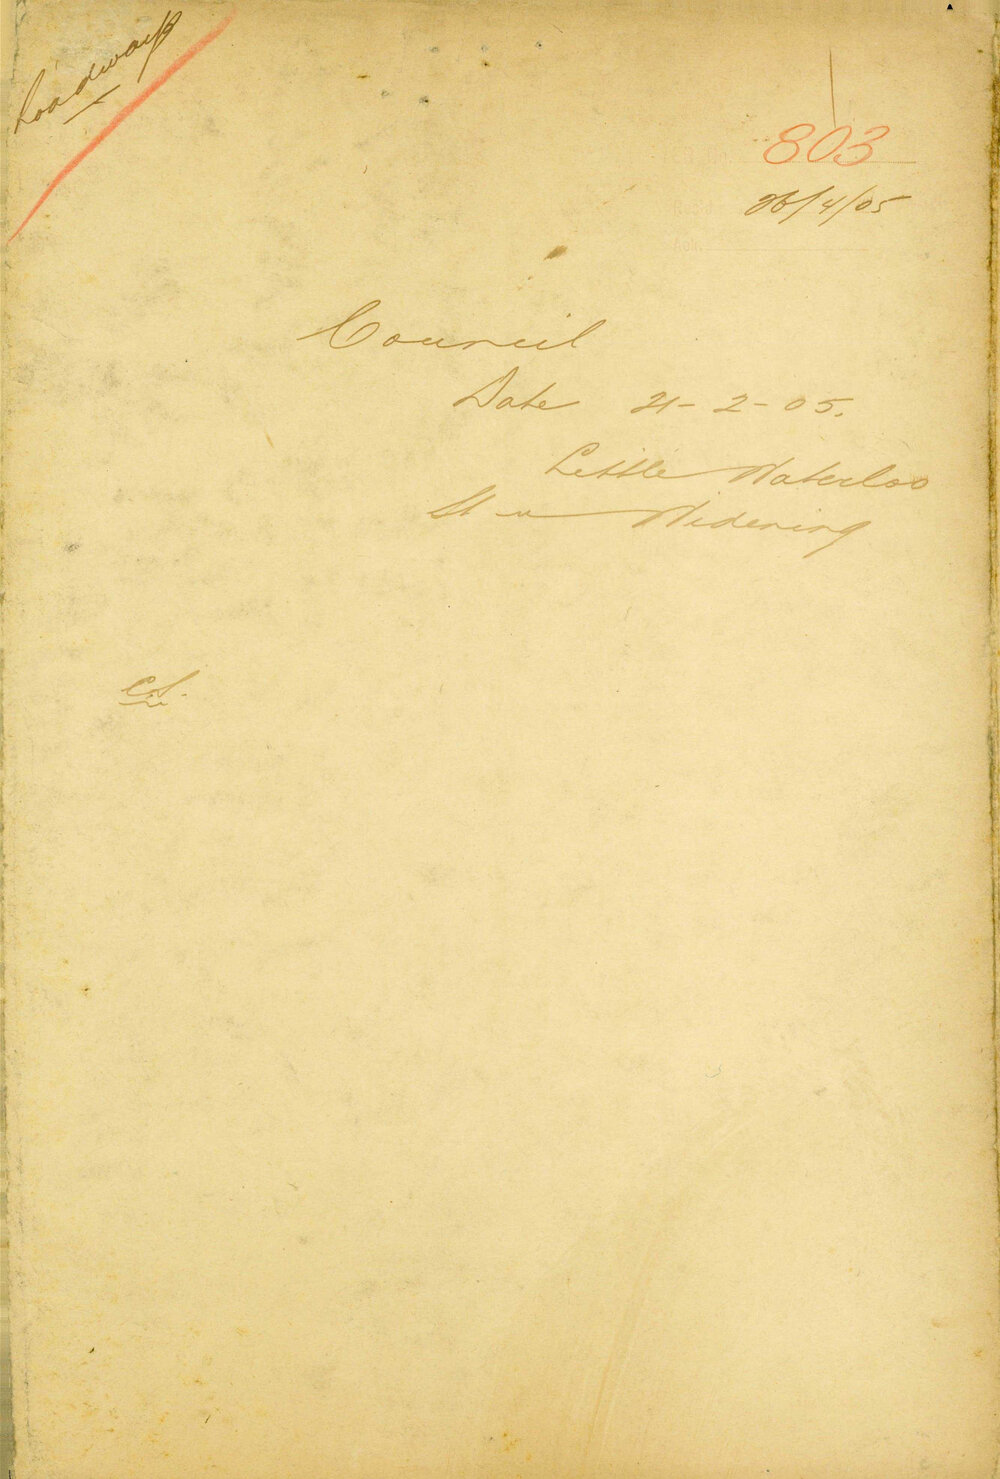 Roadways
803
26/4/05
Council
Date 21-2-05.
Little Waterloo
St Widening